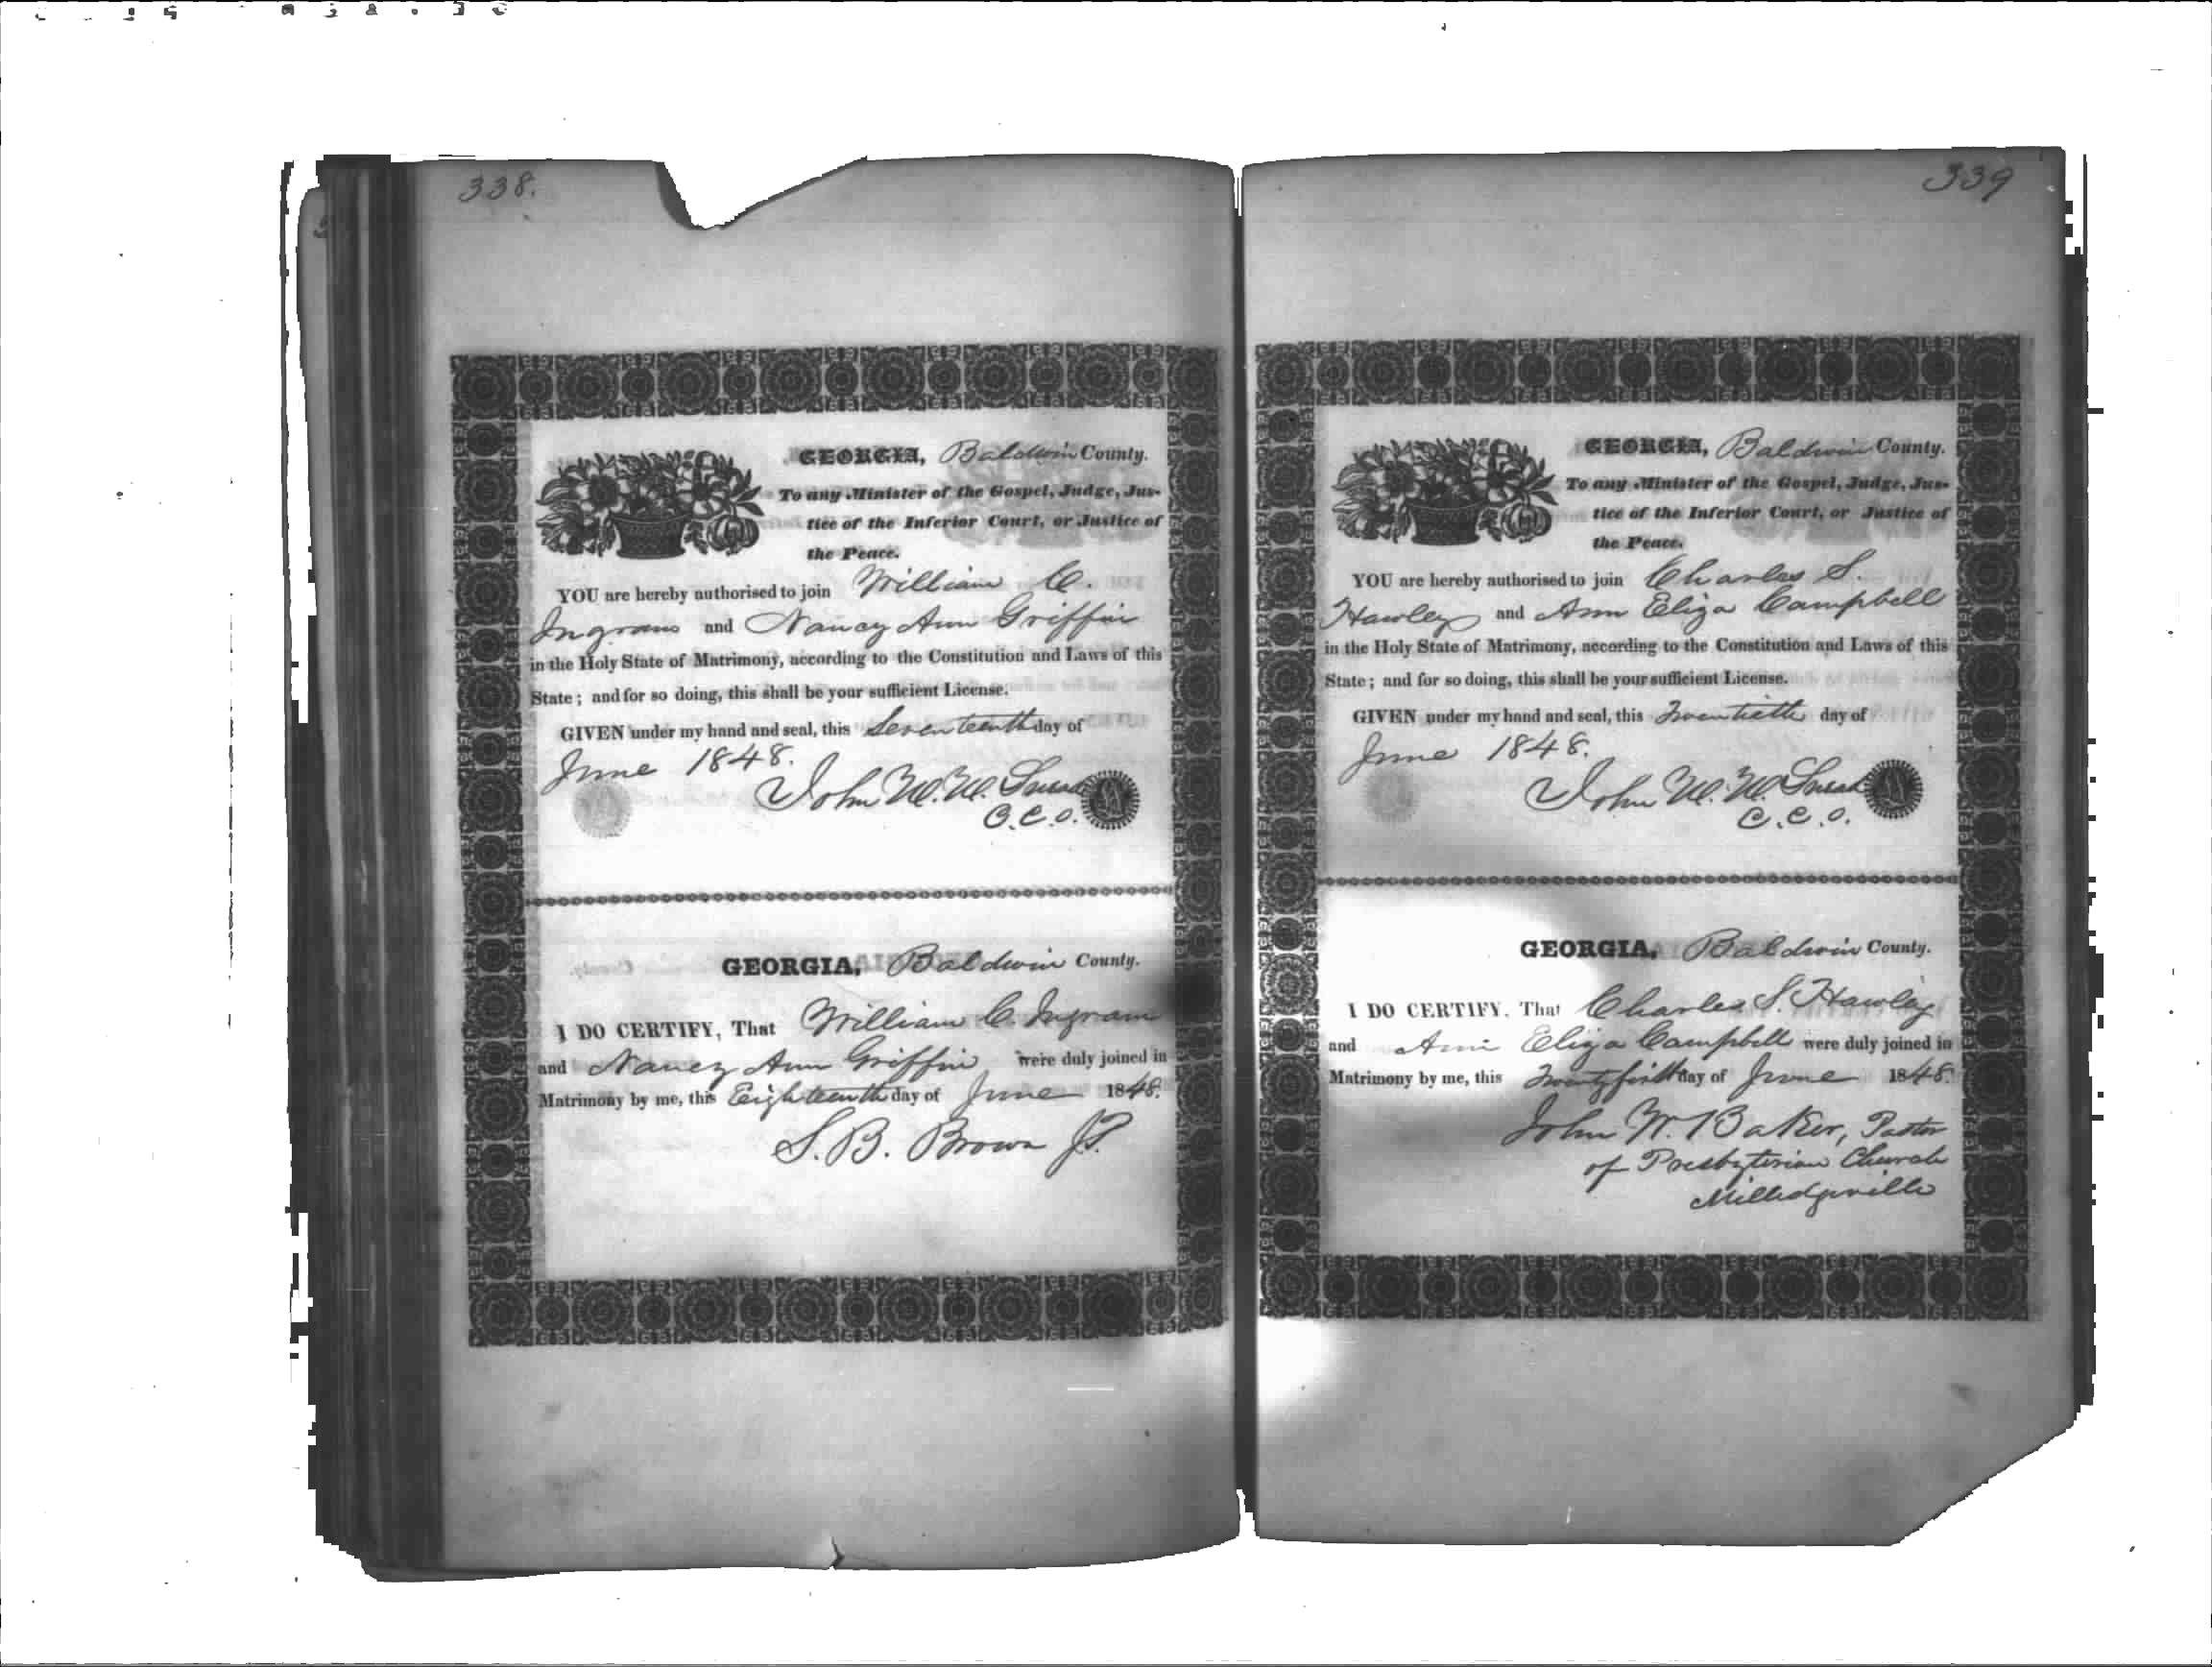 338.
GEORGIA, Baldwin County.
To any Minister of the Gospel, Judge, Jus-
tice of the Inferior Court, or Justice of
the Peace.
YOU are hereby authorised to join William C.
Ingram and Nancy Ann Griffin
in the Holy State of Matrimony, according to the Constitution and Laws of this
State; and for so doing, this shall be your sufficient License.
GIVEN under my hand and seal, this Seventeenth day of
June 1848.
John W. W.
C.C.O.
GEORGIA, Baldwin County.
I DO CERTIFY, That William C. Ingram
and Nancy Ann Griffin were duly joined in
Matrimony by me, this Eighteenth day of June 1848.
S. B. Brown J.P.
339
GEORGIA, Baldwin County.
To any Minister of the Gospel, Judge, Jus-
tice of the Inferior Court, or Justice of
the Peace.
YOU are hereby authorised to join Charles S.
Hawley and Ann Eliza Campbell
in the Holy State of Matrimony, according to the Constitution and Laws of this
State; and for so doing, this shall be your sufficient License.
GIVEN under my hand and seal, this Twentieth day of
June 1848.
John W. W.
C.C.O.
GEORGIA, Baldwin County.
I DO CERTIFY, That Charles S. Hawley
and Ann Eliza Campbell were duly joined in
Matrimony by me, this day of June 1848.
John W. Baker, Pastor
of Presbyterian Church
Milledgeville